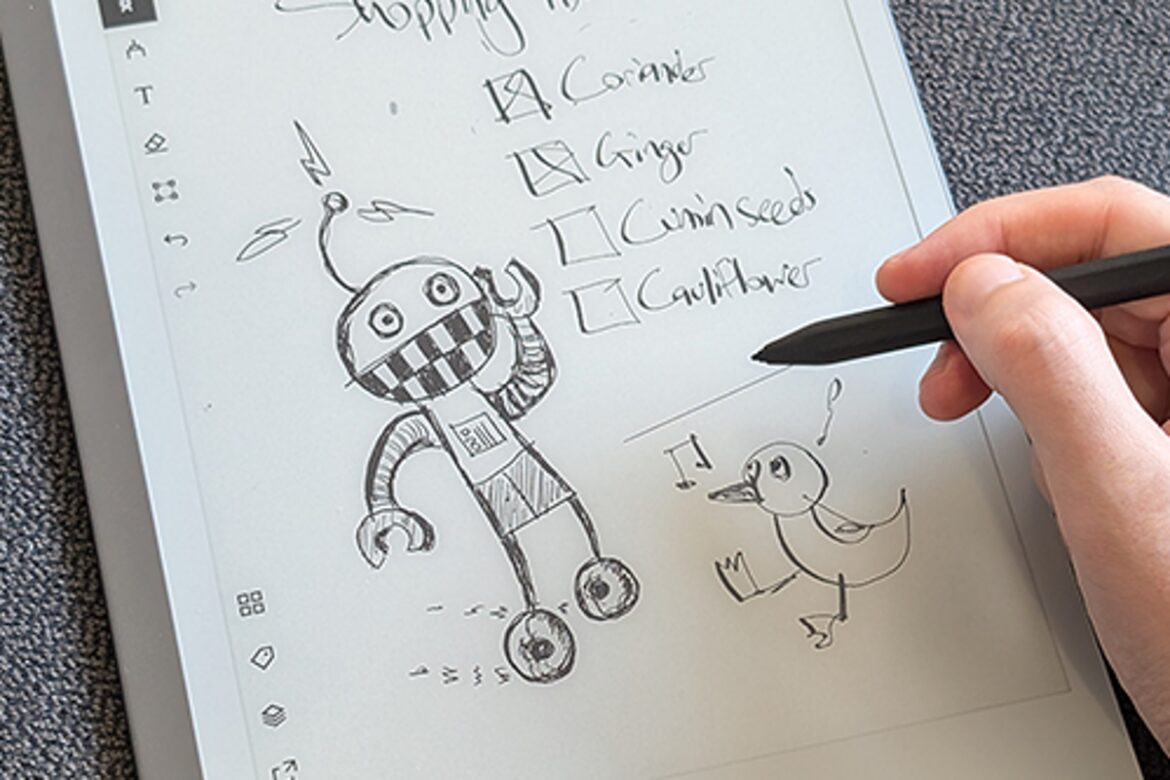 Shopping
Coriander
Ginger
Cumin seeds
Cauliflower
T